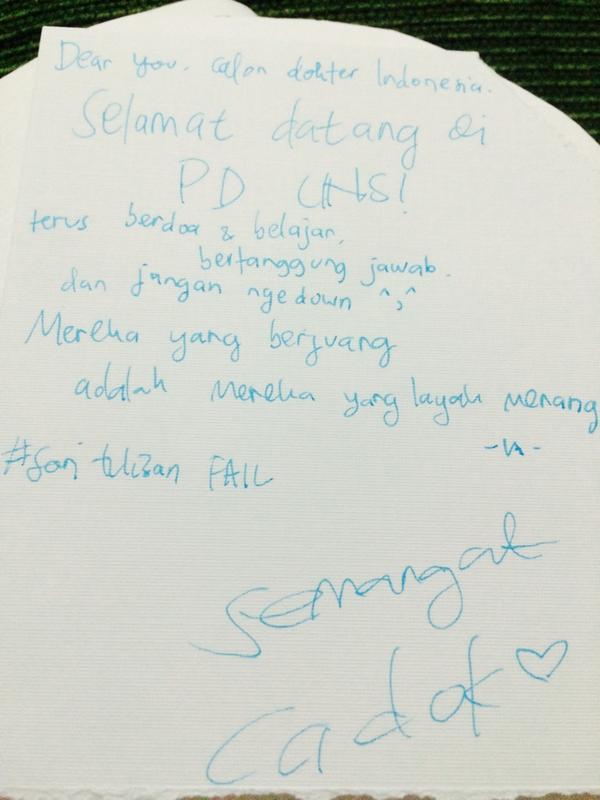 Dear you. calon dokter Indonesia.
Selamat datang di
PD UNS!
terus berdoa & belajar,
bertanggung jawab.
dan jangan ngedown ^,^
Mereka yang berjuang
adalah mereka yang layak menang
-VA-
tulisan FAIL
Semangat
cadok ♡